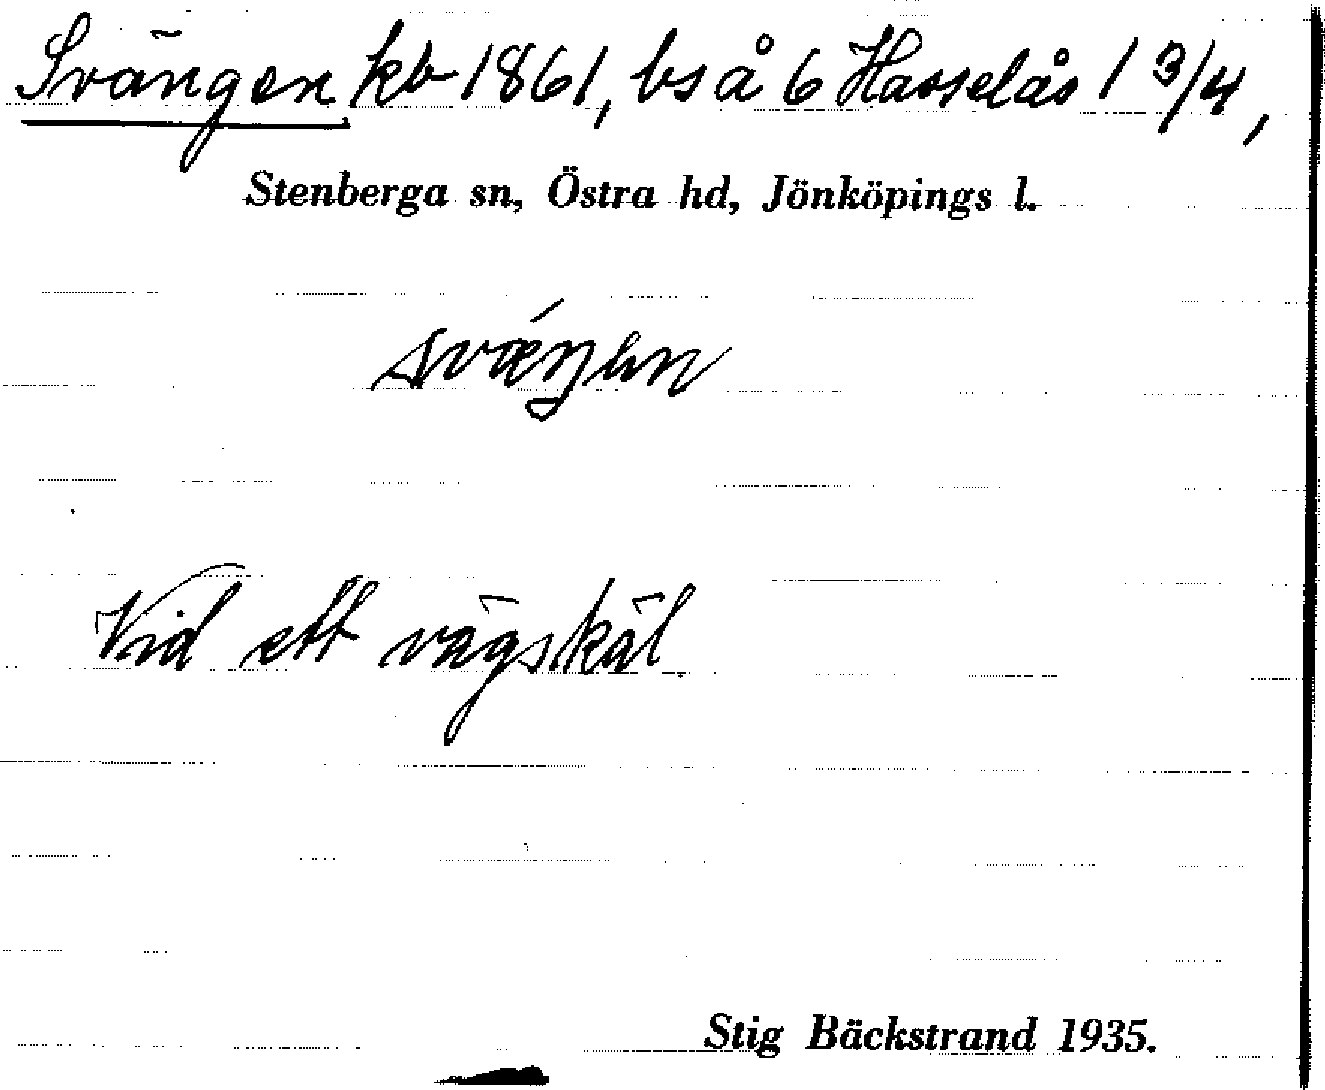 Svängen kb 1861, bs å 6 Hasselås 1 3/4,
Stenberga sn, Östra hd, Jönköpings l.
Vid ett vägskäl
Stig Bäckstrand 1935.